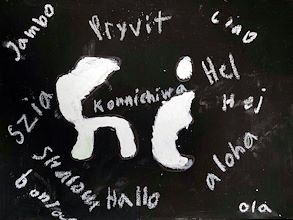 Jambo
Pryvit
Ciao
Hel
Hej
Szia
hi
Konnichiwa
Shalom
aloha
Hallo
ola